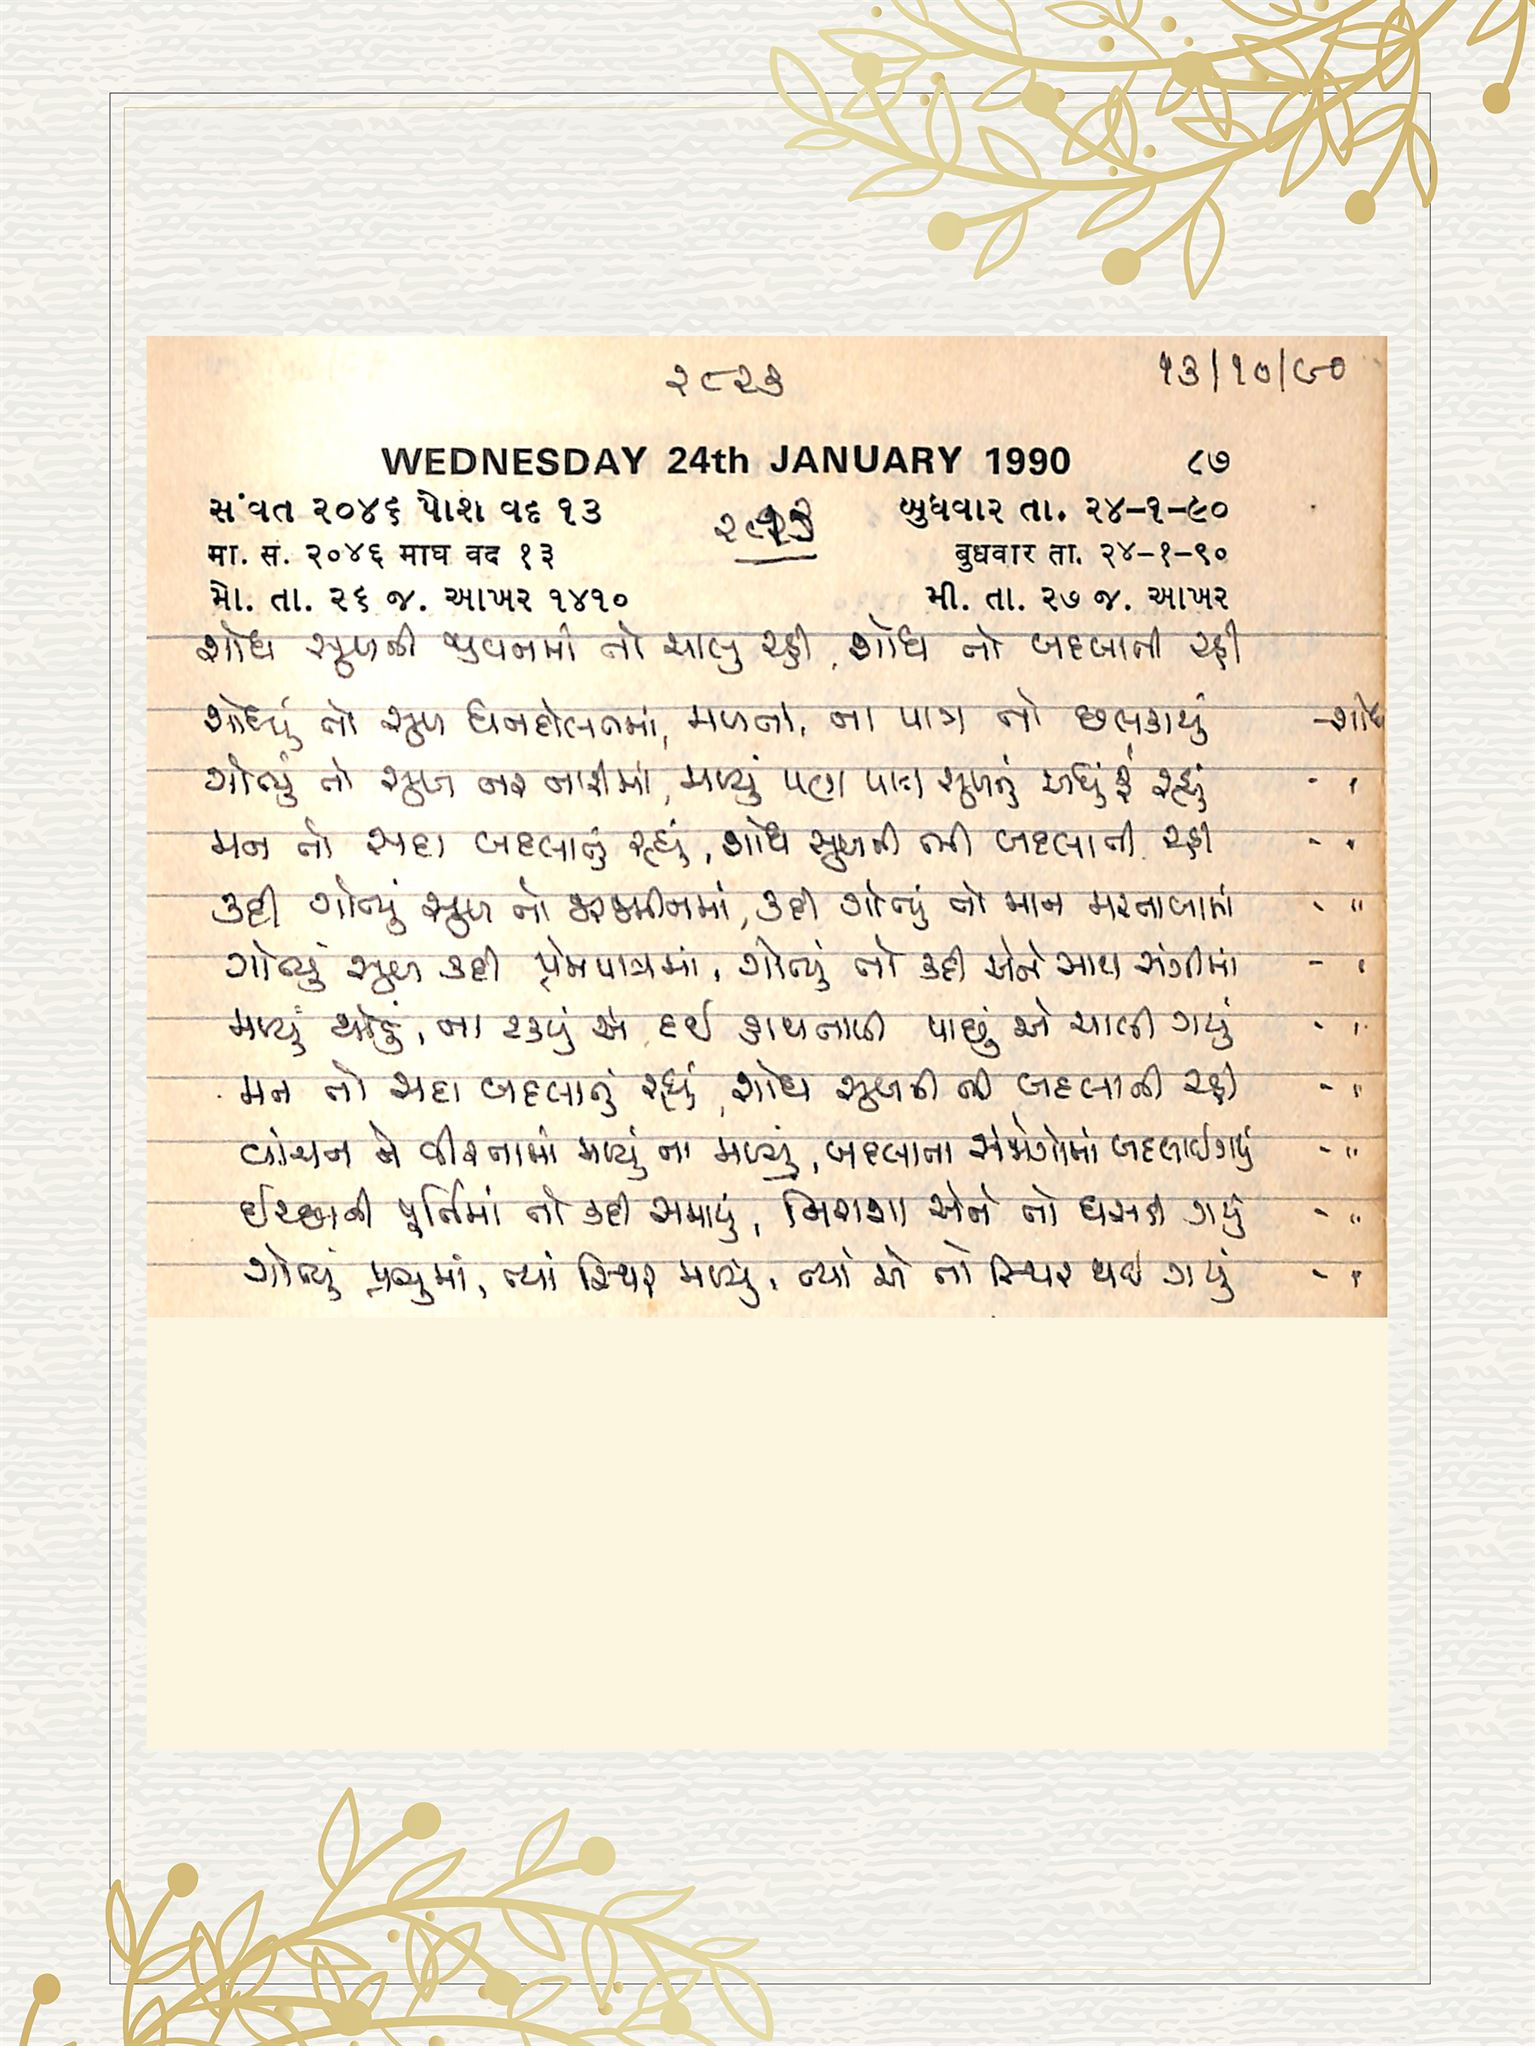 ૨૮૨૩ ૧૩/૧૦/૯૦
WEDNESDAY 24th JANUARY 1990 ૮૭
સંવત ૨૦૪૬ પોશ વદ ૧૩ બુધવાર તા. ૨૪-૧-૯૦
मा. सं. २०४६ माघ वद १३ बुधवार ता. २४-१-९०
મો. તા. ૨૬ જ. આખર ૧૪૧૦ મી. તા. ૨૭ જ. આખર
શોધ સુખની જીવનમાં તો ચાલુ રહી, શોધ તો બદલાતી રહી
શોધ્યું તો સુખ ધનદોલતમાં, મળતાં, ના પાત્ર તો છલકાયું - શોધ
ગોત્યું તો સુખ નર નારીમાં, મળ્યું પણ પાત્ર સુખનું અધું રૂં રહ્યું - "
મન તો સદા બદલાતું રહ્યું, શોધ સુખની ત્યાં બદલાતી રહી - "
કદી ગોત્યું સુખ તો જરજમીનમાં, કદી ગોત્યું તો માન મરતબામાં - "
ગોત્યું સુખ કદી પ્રેમપાત્રમાં, ગોત્યું તો કદી એને સાથ સંગીમાં - "
મળ્યું થોડું, ના ટક્યું એ દઈ હાથતાળી પાછું એ ચાલી ગયું - "
મન તો સદા બદલાતું રહ્યું, શોધ સુખની ત્યાં બદલાતી રહી - "
વાંચન ને વીરતામાં મળ્યું ના મળ્યું, બદલાતા સંજોગોમાં બદલાઈ ગયું - "
ઈચ્છાની પૂર્તિમાં તો કદી સમાયું, નિરાશા એને તો ઘસડી ગયું - "
ગોત્યું પ્રભુમાં, ત્યાં સ્થિર મળ્યું, ત્યાં એ તો સ્થિર થઈ ગયું - "